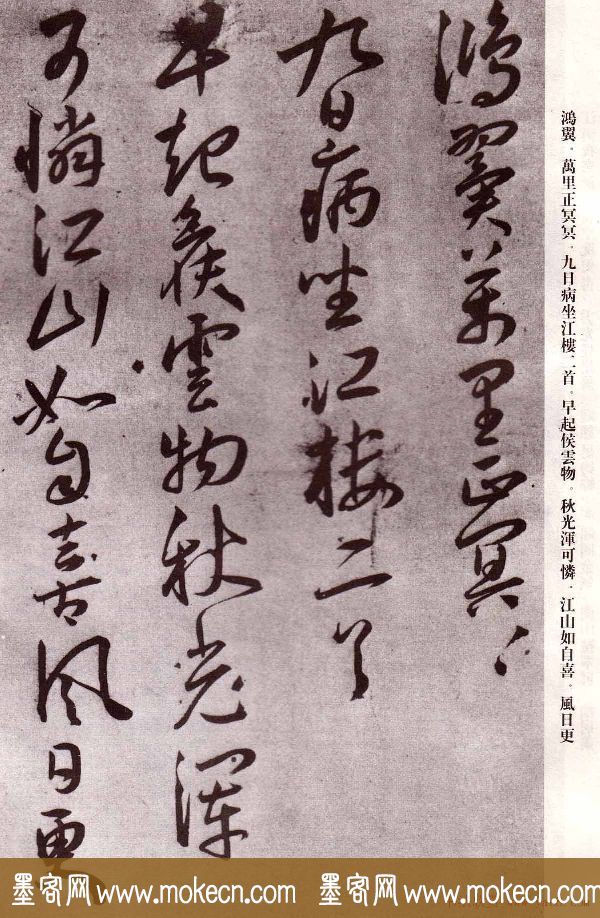 鴻翼。萬里正冥冥。九日病坐江樓二首。早起侯雲物。秋光渾可憐。江山如自喜。風日更
鴻翼萬里正冥〻
九日病坐江樓二首
早起侯雲物秋光渾
可憐江山如自喜風日更
墨客网 www.mokecn.com 墨客网 www.mokecn.com